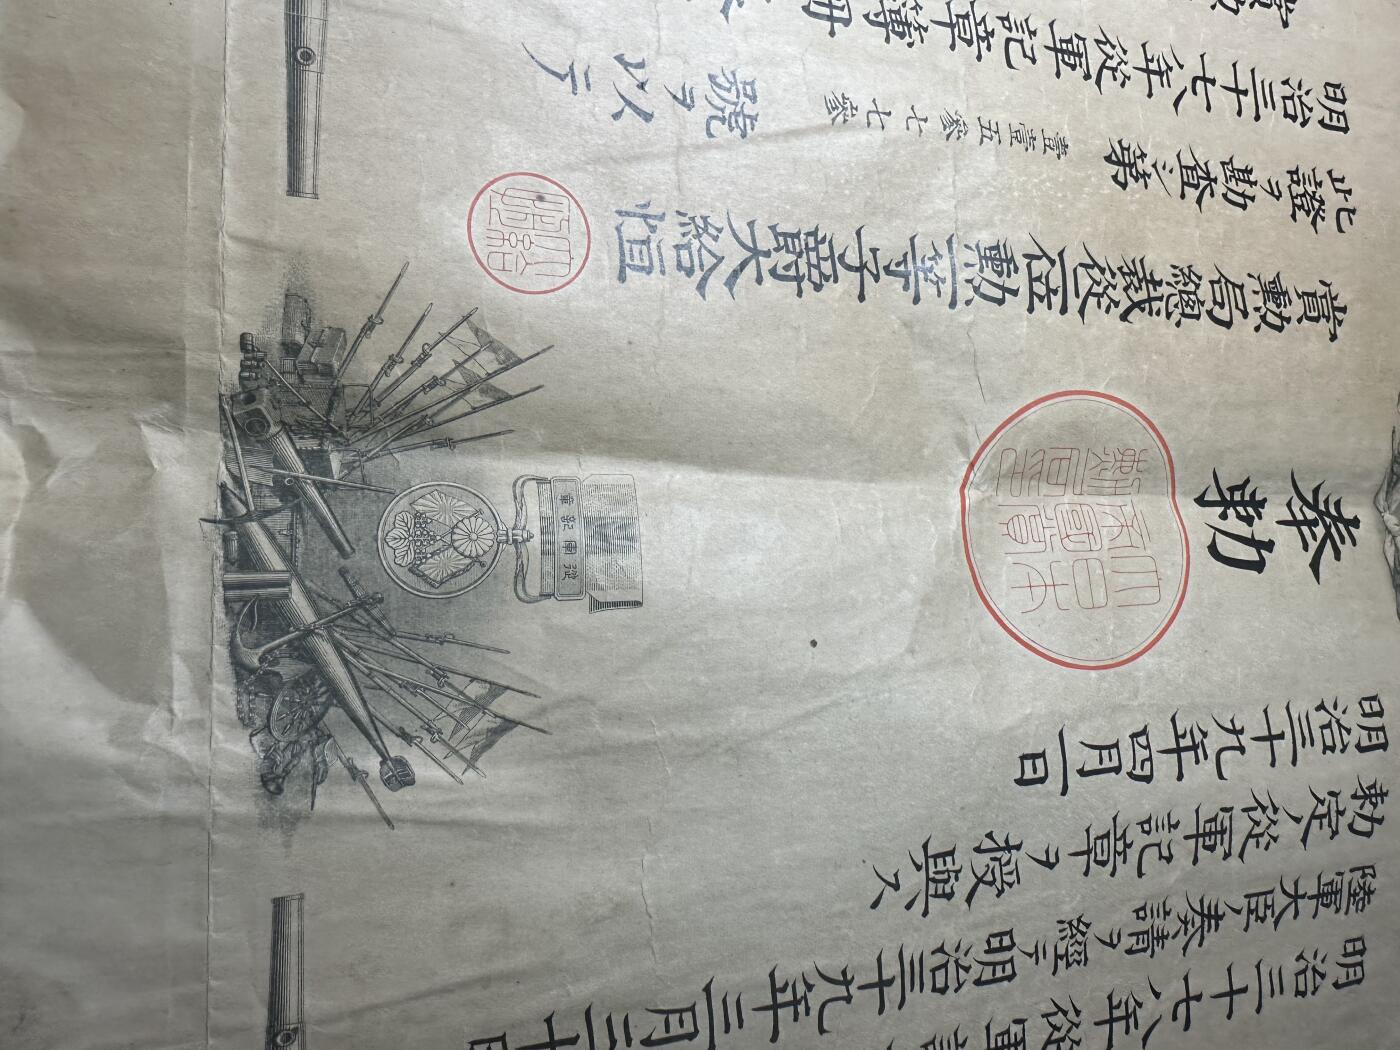 明治三十七八年從軍記
陸軍大臣ノ奏請ヲ經テ明治三十九年三月三十日
勅定ノ從軍記章ヲ授與ス
明治三十九年四月一日
奉勅
大日本
帝國賞
勳局印
從軍記章
賞勳局總裁從二位勳一等子爵大給恒
此證ヲ勘査シ第壹壹五參七七參號ヲ以テ
明治三十七八年從軍記章簿冊